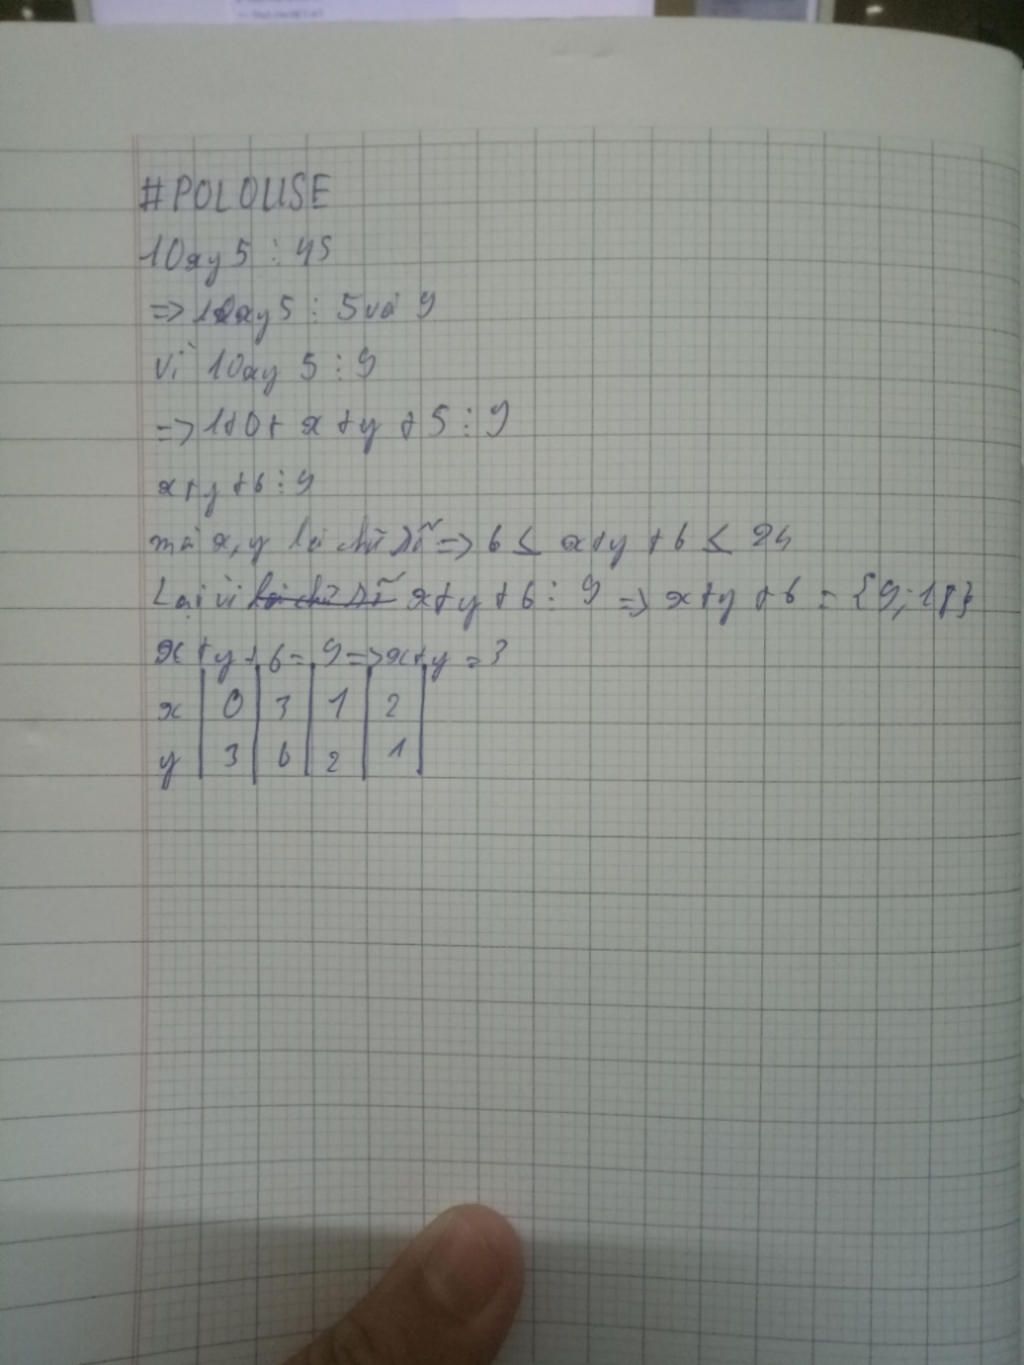 #POLOUSE
10xy5 ⋮ 45
=> 10xy5 ⋮ 5 và 9
Vì 10xy 5 ⋮ 9
=> 1+0+ x + y + 5 ⋮ 9
x + y + 6 ⋮ 9
mà x, y là chữ số => 6 ≤ x+y + 6 ≤ 24
Lại vì x+y + 6 ⋮ 9 => x+y + 6 = {9; 18}
x + y + 6 = 9 => x+y = 3
x | 0 | 3 | 1 | 2 |
y | 3 | 6 | 2 | 1 |